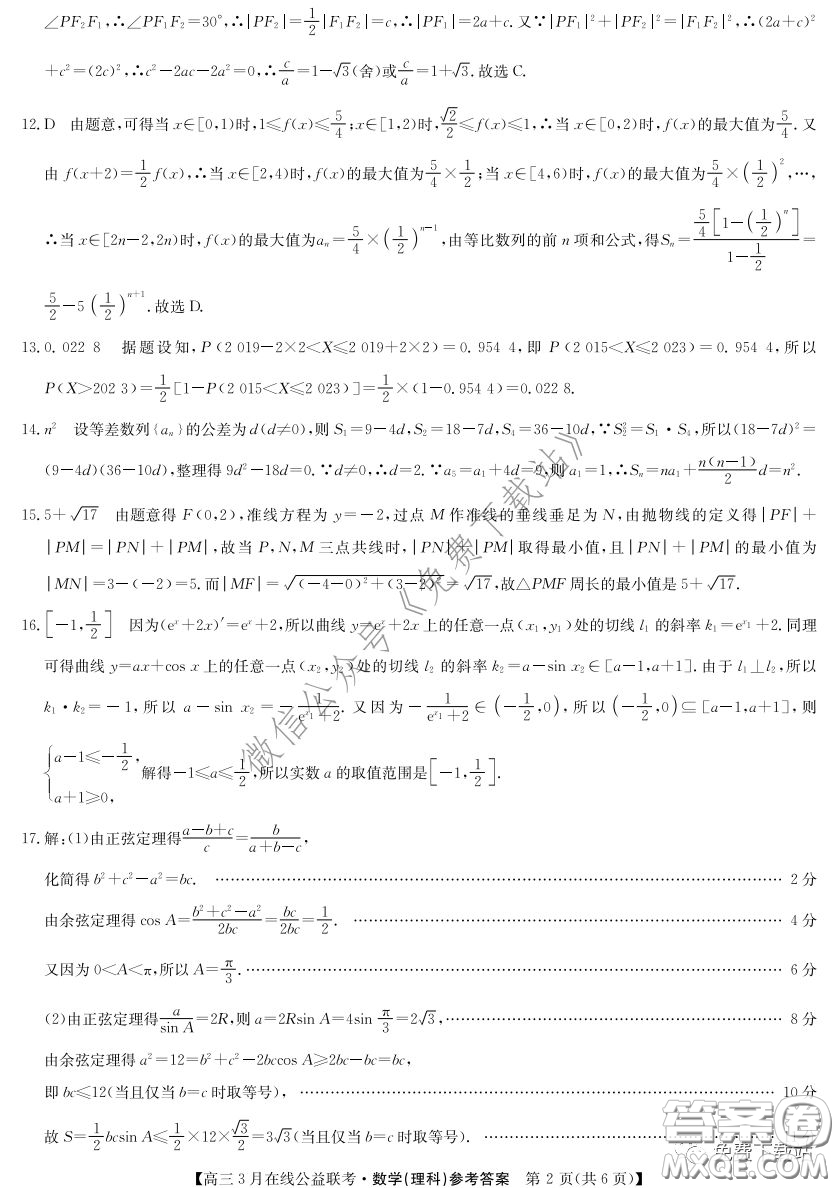 ∠PF₂F₁,∴∠PF₁F₂=30°,∴|PF₂|=1/2|F₁F₂|=c,∴|PF₁|=2a+c.又∵|PF₁|²+|PF₂|²=|F₁F₂|²,∴(2a+c)²
+c²=(2c)²,∴c²-2ac-2a²=0,∴c/a=1-√3(舍)或c/a=1+√3.故选C.
12.D 由题意,可得当x∈[0,1)时,1≤f(x)≤5/4;x∈[1,2)时,√2/2≤f(x)≤1,∴当x∈[0,2)时,f(x)的最大值为5/4.又
由f(x+2)=1/2f(x),∴当x∈[2,4)时,f(x)的最大值为5/4×1/2;当x∈[4,6)时,f(x)的最大值为5/4×(1/2)²,…,
∴当x∈[2n-2,2n)时,f(x)的最大值为aₙ=5/4×(1/2)ⁿ⁻¹,由等比数列的前n项和公式,得Sₙ=5/4[1-(1/2)ⁿ]/(1-1/2)=
5/2-5(1/2)ⁿ⁺¹.故选D.
13.0.022 8 据题设知,P(2 019-2×2<X≤2 019+2×2)=0.954 4,即P(2 015<X≤2 023)=0.954 4,所以
P(X>202 3)=1/2[1-P(2 015<X≤2 023)]=1/2×(1-0.954 4)=0.022 8.
14.n² 设等差数列{aₙ}的公差为d(d≠0),则S₁=9-4d,S₂=18-7d,S₄=36-10d,∵S₂²=S₁·S₄,所以(18-7d)²=
(9-4d)(36-10d),整理得9d²-18d=0.∵d≠0,∴d=2.∵a₅=a₁+4d=9,则a₁=1,∴Sₙ=na₁+n(n-1)/2 d=n².
15.5+√17 由题意得F(0,2),准线方程为y=-2,过点M作准线的垂线垂足为N,由抛物线的定义得|PF|+
|PM|=|PN|+|PM|,故当P,N,M三点共线时,|PN|+|PM|取得最小值,且|PN|+|PM|的最小值为
|MN|=3-(-2)=5.而|MF|=√((-4-0)²+(3-2)²)=√17,故△PMF周长的最小值是5+√17.
16.[-1,1/2] 因为(eˣ+2x)′=eˣ+2,所以曲线y=eˣ+2x上的任意一点(x₁,y₁)处的切线l₁的斜率k₁=e^x₁+2.同理
可得曲线y=ax+cos x上的任意一点(x₂,y₂)处的切线l₂的斜率k₂=a-sin x₂∈[a-1,a+1].由于l₁⊥l₂,所以
k₁·k₂=-1,所以a-sin x₂=-1/(e^x₁+2).又因为-1/(e^x₁+2)∈(-1/2,0),所以(-1/2,0)⊆[a-1,a+1],则
{a-1≤-1/2,
a+1≥0, 解得-1≤a≤1/2,所以实数a的取值范围是[-1,1/2].
17.解:(1)由正弦定理得(a-b+c)/c=b/(a+b-c),
化简得b²+c²-a²=bc. …… 2分
由余弦定理得cos A=(b²+c²-a²)/2bc=bc/2bc=1/2. …… 4分
又因为0<A<π,所以A=π/3. …… 6分
(2)由正弦定理得a/sin A=2R,则a=2Rsin A=4sin π/3=2√3, …… 8分
由余弦定理得a²=12=b²+c²-2bccos A≥2bc-bc=bc,
即bc≤12(当且仅当b=c时取等号), …… 10分
故S=1/2bcsin A≤1/2×12×√3/2=3√3(当且仅当b=c时取等号). ……
【高三3月在线公益联考·数学(理科)参考答案 第2页(共6页)】
微信公众号《免费下载站》
免费下载站
答案圈
MXQE.COM